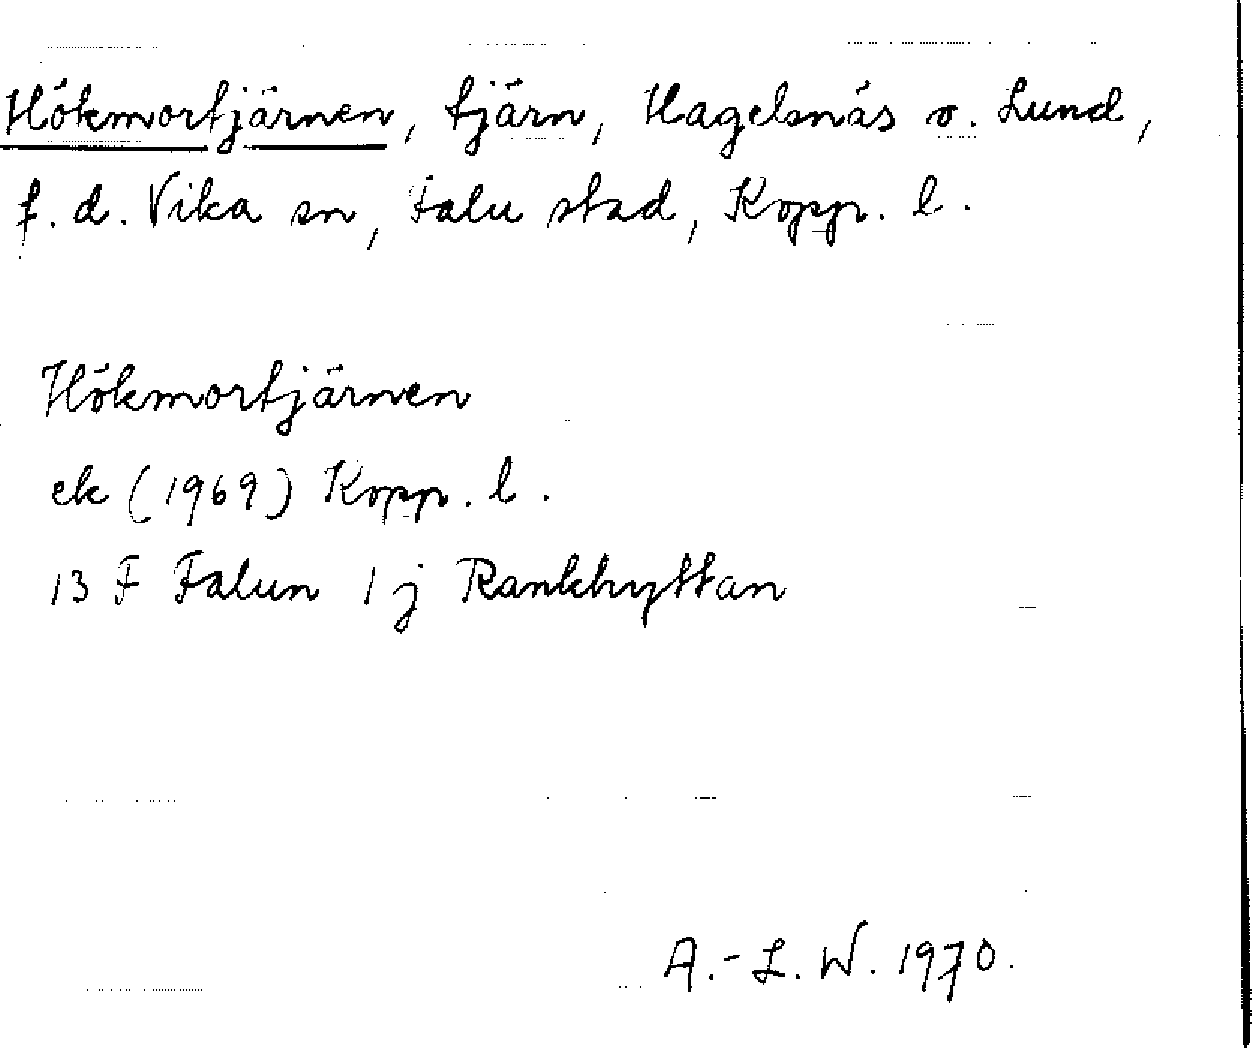 Hökmortjärnen, tjärn, Hagelsnäs o. Lund,
f. d. Vika sn, Falu stad, Kopp. l.
Hökmortjärnen
ek (1969) Kopp. l.
13 F Falun 1 j Rankhyttan
A.-L. W. 1970.